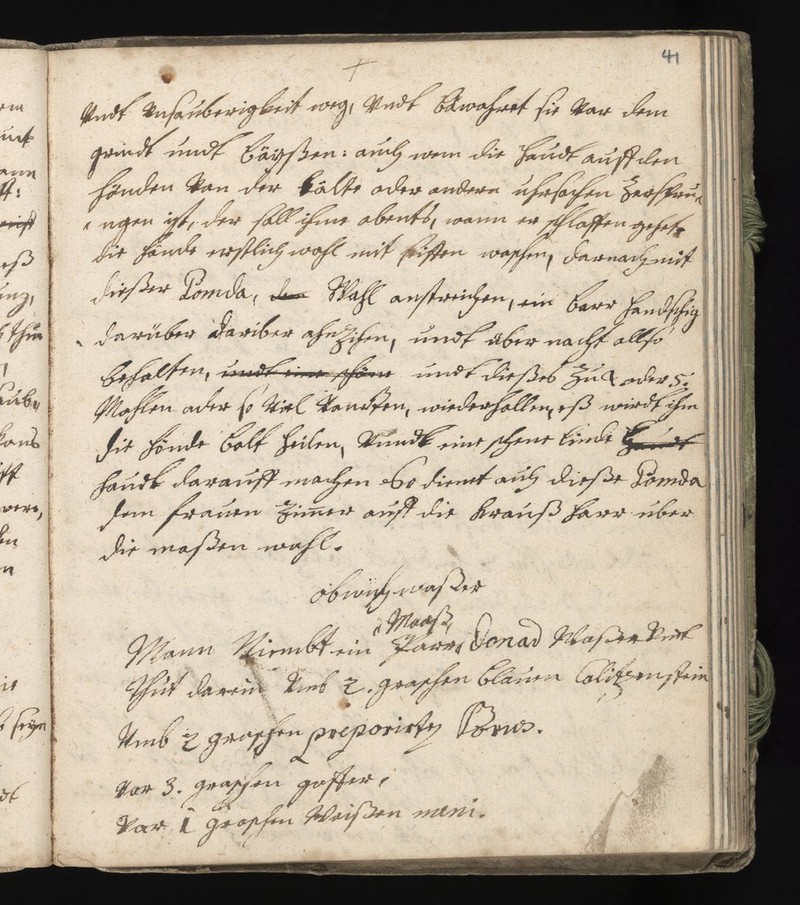 41
Vndt Vnsauberigkeit weg, Vndt bäwahret sie Var dem
grindt undt bäyßen: auch wem die Haudt auff den
händen Van der kälte oder andern uhrsachen Zerspru-
ngen ist, der soll ihme abents, wann er schlaffen gehet
die hände erstlich wohl mit waschen, darnach mit
dießer Pomda, Wahl anstreichen, ein barr handschig
darüber dariber ahn Zihen, undt über nacht allso
behalten, undt eine schöne undt dießes Zu 4 oder 5:
Mahlen oder so Viel Vanöten, wiederhollen, eß wirdt ihm
die hände balt heilen, Vnndt eine schene linde Haudt
haudt darauff machen So dienet auch dieße Pomda
dem frauen Zimmer auff die krauß harr uber
die maßen wahl.
Maaß
Mann Niembt ein Parr Donad Waßer Vnt
thut darein Vmb 2. groschen blauen Calitzenstein
Vmb 2 groschen preporirty
Var 3. groschen gaffer,
Var 1 groschen Weißen